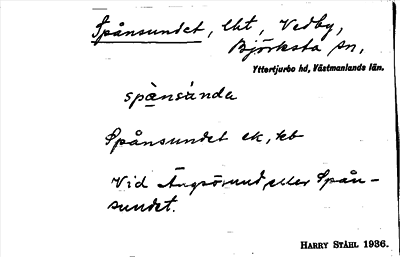 Spånsundet, lht, Vedby,
Björksta sn,
Yttertjurbo hd, Västmanlands län.
spånsúnda
Spånsundet ek, kb
Vid Ängsösund eller Spån-
sundet.
HARRY STÅHL 1936.